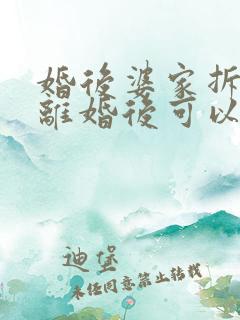 婚後婆家拆
離婚後可以
迪堡
未经同意禁止转载